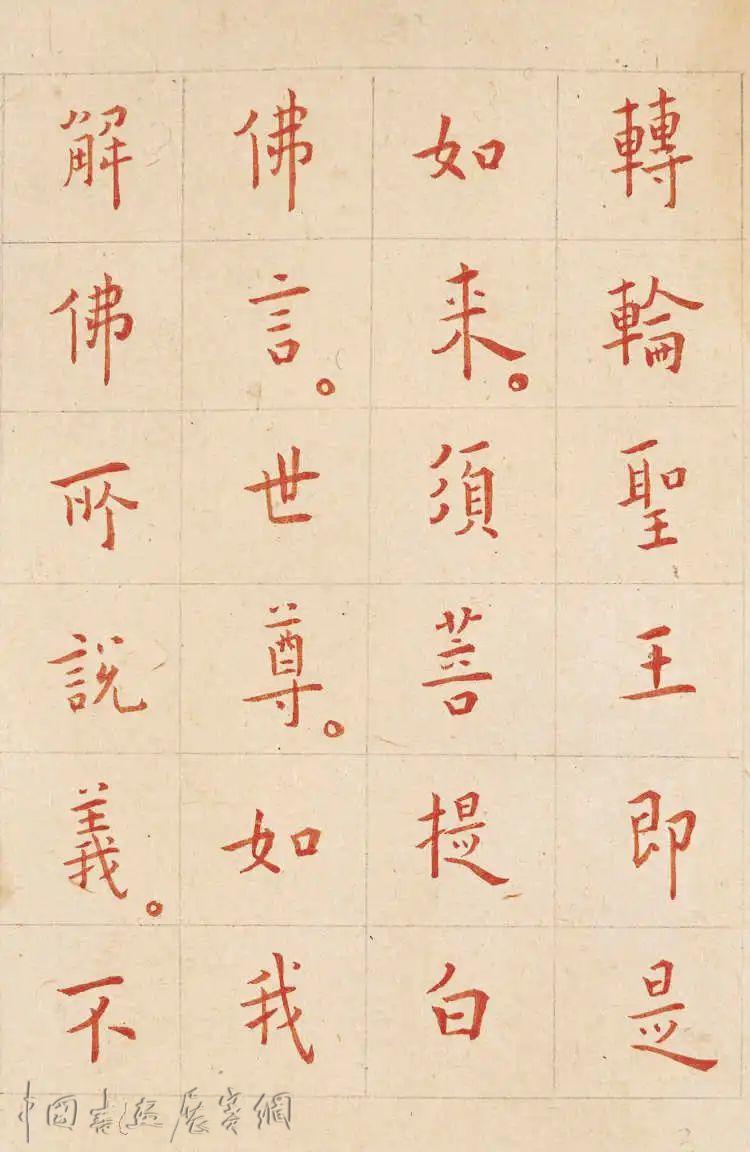 轉輪聖王即是
如来。須菩提白
佛言。世尊。如我
解佛所說義。不
中国书画展赛網